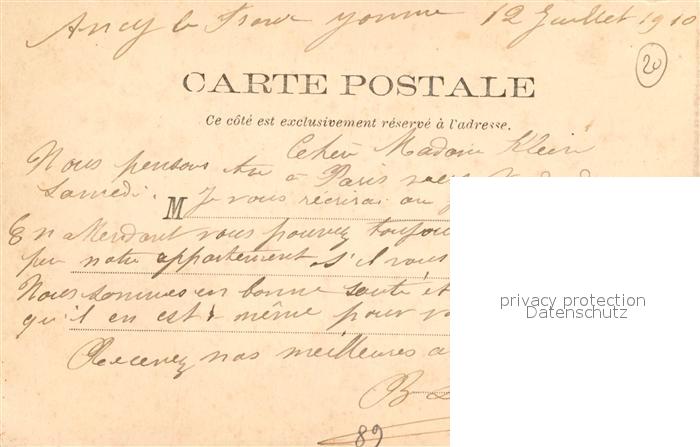 Ancy le Franc Yonne 12 Juillet 1910
20
CARTE POSTALE
Ce côté est exclusivement réservé à l'adresse.
Chère Madame Klein
Nous pensons être à Paris
Samedi. Je vous récrirai au
M
En attendant vous pouvez toujou
notre appartement s'il vous
Nous sommes en bonne santé et
qu'il en est même pour vo
Recevez nos meilleures a
B
89
privacy protection
Datenschutz